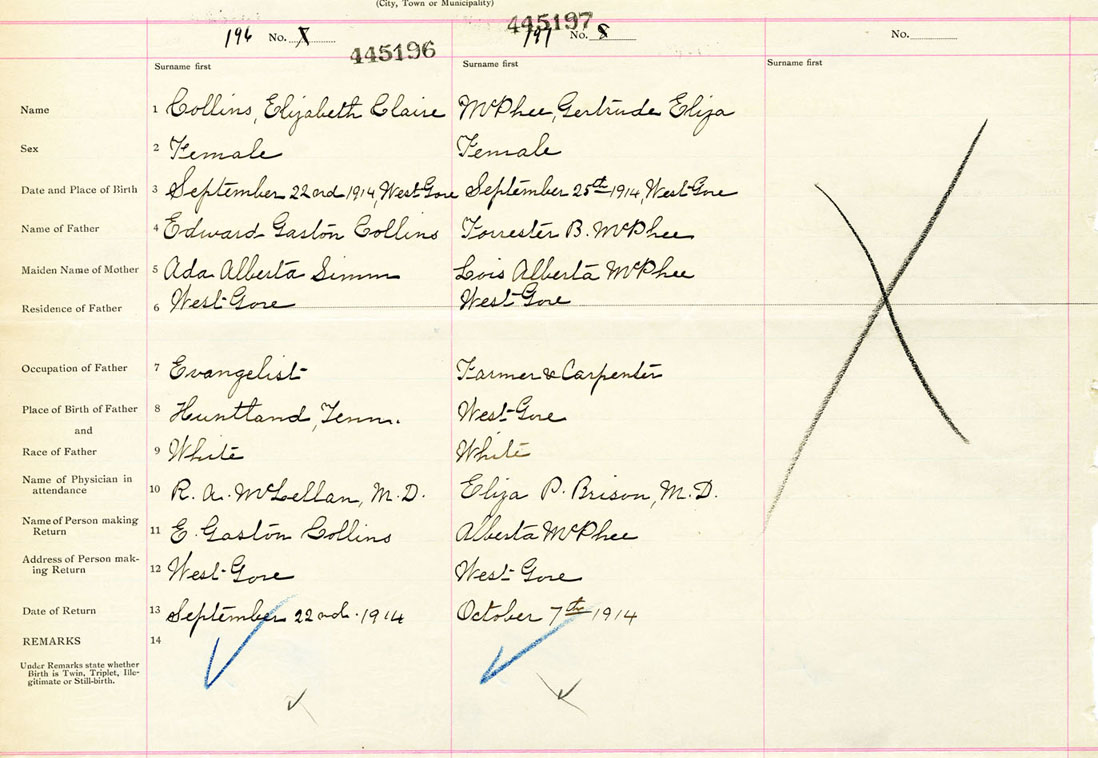 (City, Town or Municipality)
196 No. 7 445196
197 No. 8 445197
No.
Surname first Surname first Surname first
Name 1 Collins, Elizabeth Claire McPhee, Gertrude Eliza
Sex 2 Female Female
Date and Place of Birth 3 September 22nd 1914, West Gore September 25th 1914, West Gore
Name of Father 4 Edward Gaston Collins Forrester B. McPhee
Maiden Name of Mother 5 Ada Alberta Simm Lois Alberta McPhee
Residence of Father 6 West Gore West Gore
Occupation of Father 7 Evangelist Farmer & Carpenter
Place of Birth of Father 8 Huntland, Tenn. West Gore
and
Race of Father 9 White White
Name of Physician in
attendance 10 R. A. McLellan, M.D. Eliza P. Brison, M.D.
Name of Person making
Return 11 E. Gaston Collins Alberta McPhee
Address of Person mak-
ing Return 12 West Gore West Gore
Date of Return 13 September 22nd 1914 October 7th 1914
REMARKS 14
Under Remarks state whether
Birth is Twin, Triplet, Ille-
gitimate or Still-birth.